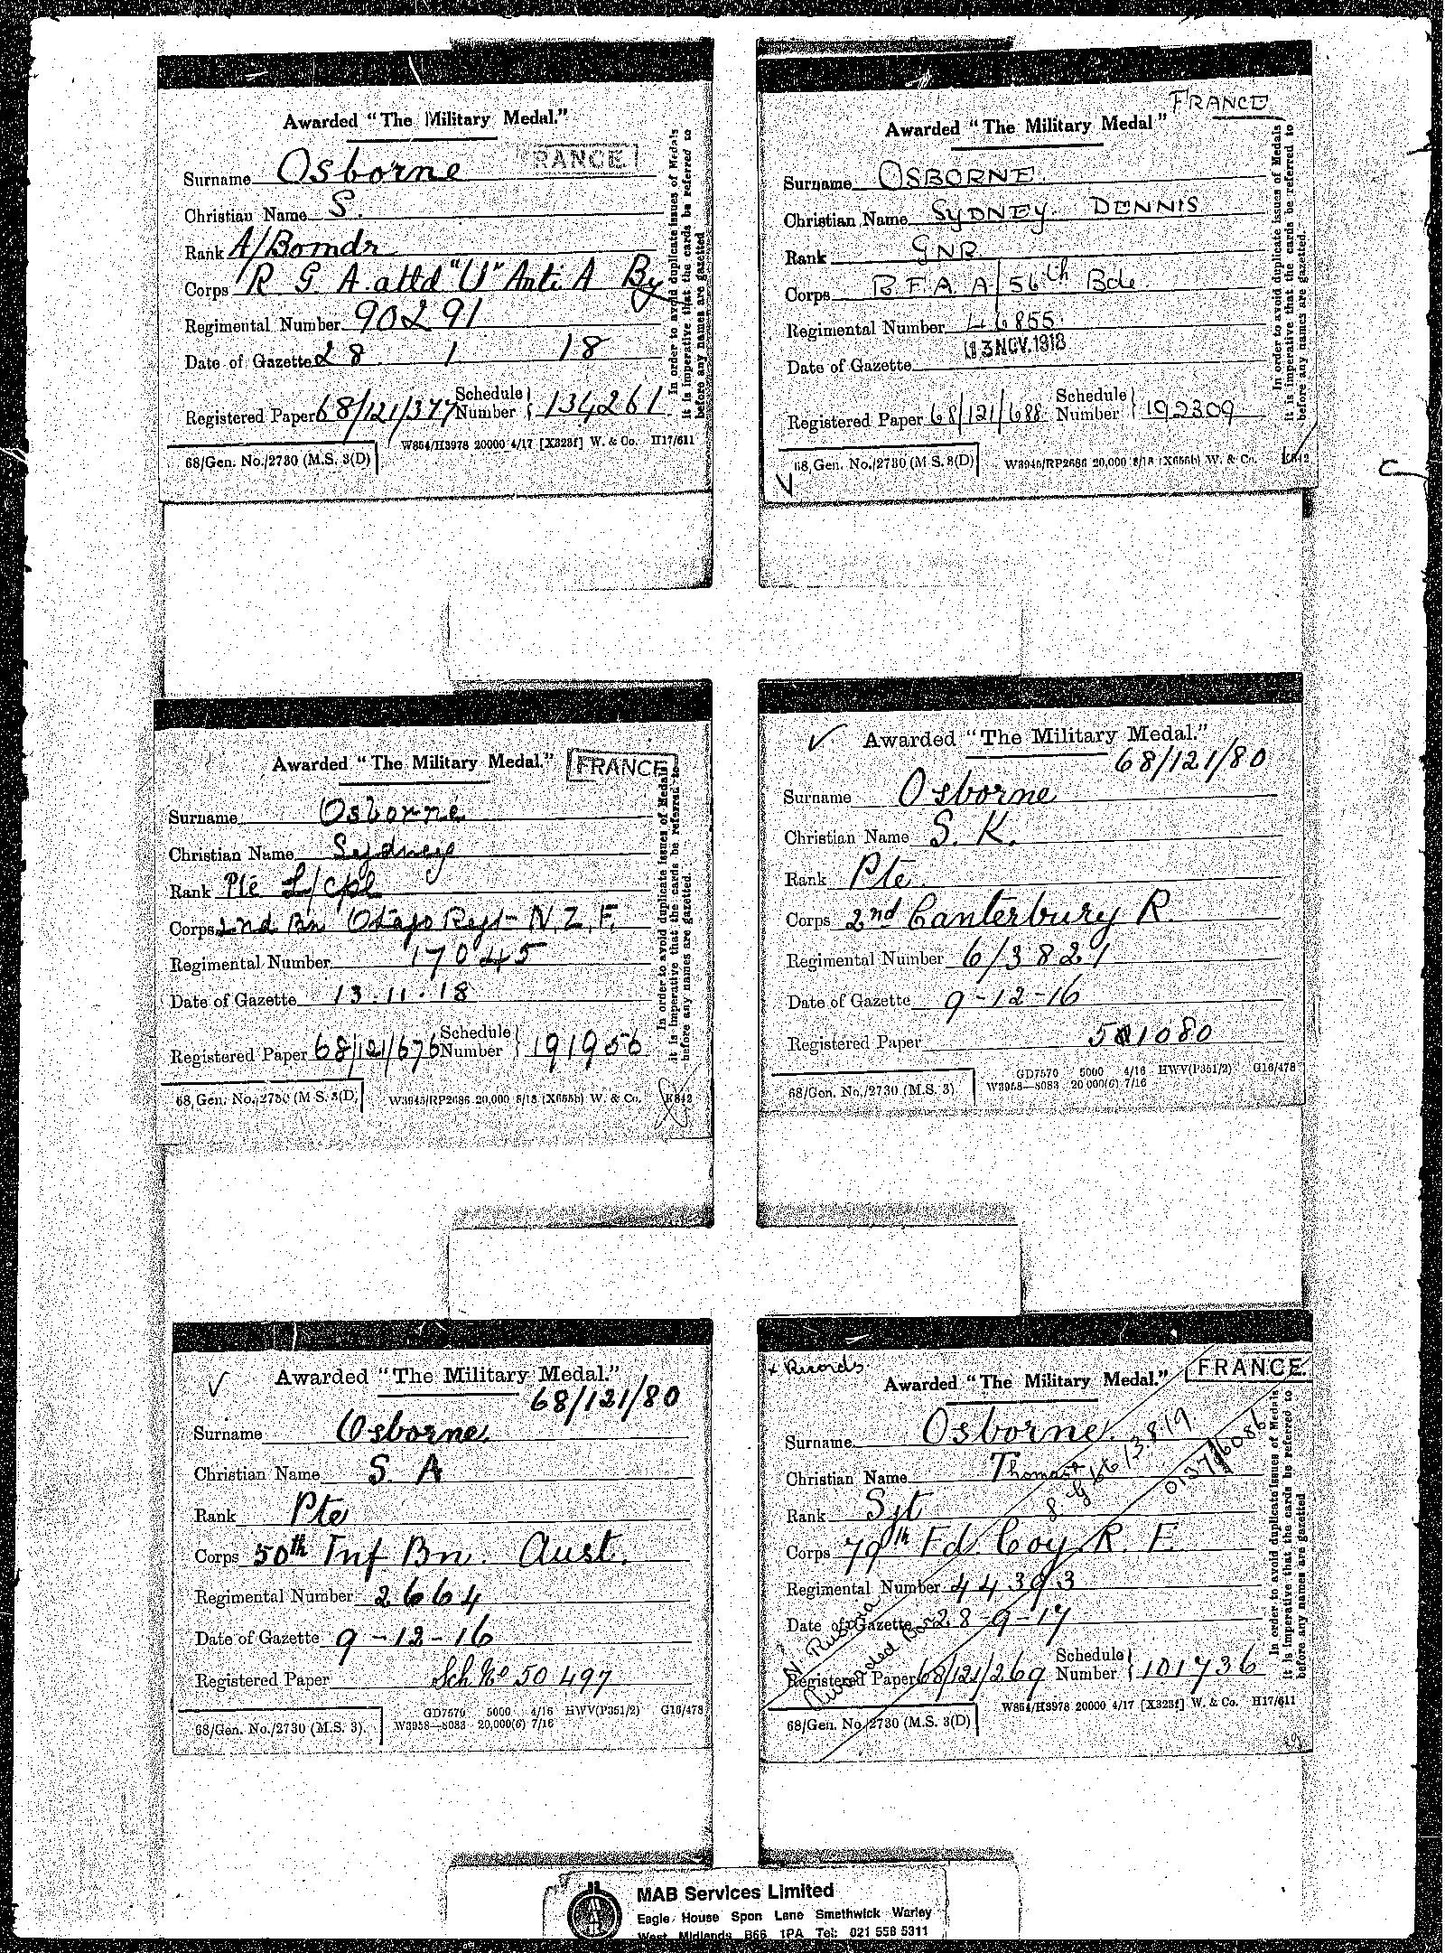 Awarded "The Military Medal."
FRANCE
Surname Osborne
Christian Name S.
Rank A/Bomdr
Corps R G A. attd "U" Anti A By
Regimental Number 90291
Date of Gazette 28 1 18
Registered Paper 68/121/377 Schedule Number 134261
68/Gen. No./2730 (M.S. 3(D)
W864/H3978 20000 4/17 [X323f] W. & Co. H17/611
In order to avoid duplicate issues of Medals
it is imperative that the cards be referred to
before any names are gazetted
FRANCE
Awarded "The Military Medal"
Surname OSBORNE.
Christian Name SYDNEY. DENNIS
Rank GNR
Corps R F A. A/56th Bde
Regimental Number 46855.
Date of Gazette 13 NOV. 1918
Registered Paper 68/121/688 Schedule Number 192309
68, Gen. No./2730 (M S. 3(D)
W3945/RP2686 20,000 8/18 (X655b) W. & Co. K842
In order to avoid duplicate issues of Medals
it is imperative that the cards be referred to
before any names are gazetted.
Awarded "The Military Medal."
FRANCE
Surname Osborne
Christian Name Sydney
Rank Pte L/Cpl
Corps 2nd Bn Otago Regt - N.Z.F.
Regimental Number 17045
Date of Gazette 13.11.18
Registered Paper 68/121/676 Schedule Number 191956
68, Gen. No./2730 (M S. 3(D)
W3945/RP2686 20,000 8/18 (X655b) W. & Co. K842
In order to avoid duplicate issues of Medals
it is imperative that the cards be referred to
before any names are gazetted.
Awarded "The Military Medal."
68/121/80
Surname Osborne
Christian Name S. K.
Rank Pte.
Corps 2nd Canterbury R.
Regimental Number 6/3821
Date of Gazette 9-12-16
Registered Paper
68/Gen. No./2730 (M.S. 3)
GD7570 5000 4/16 HWV(P351/2) G16/478
W3958—8083 20 000(6) 7/16
Awarded "The Military Medal."
68/121/80
Surname Osborne.
Christian Name S. A
Rank Pte
Corps 50th Inf Bn. Aust.
Regimental Number 2664
Date of Gazette 9-12-16
Registered Paper Sch No 50497
68/Gen. No./2730 (M.S. 3).
GD7570 5000 4/16 HWV(P351/2) G16/478
W3958—8083 20,000(6) 7/16
+ Records
Awarded "The Military Medal."
FRANCE.
Surname Osborne.
Christian Name Thomas
Rank Sjt
Corps 79th Fd Coy R. E.
Regimental Number 44393
Date of Gazette 28-9-17
Registered Paper 68/121/269 Schedule Number 101736
N. Russia
Awarded Bar
68/Gen. No./2730 (M.S. 3(D)
W864/H3978 20000 4/17 [X323f] W. & Co. H17/611
In order to avoid duplicate issues of Medals
it is imperative that the cards be referred to
before any names are gazetted
MAB Services Limited
Eagle House Spon Lane Smethwick Warley
West Midlands B66 1PA Tel: 021 558 5311